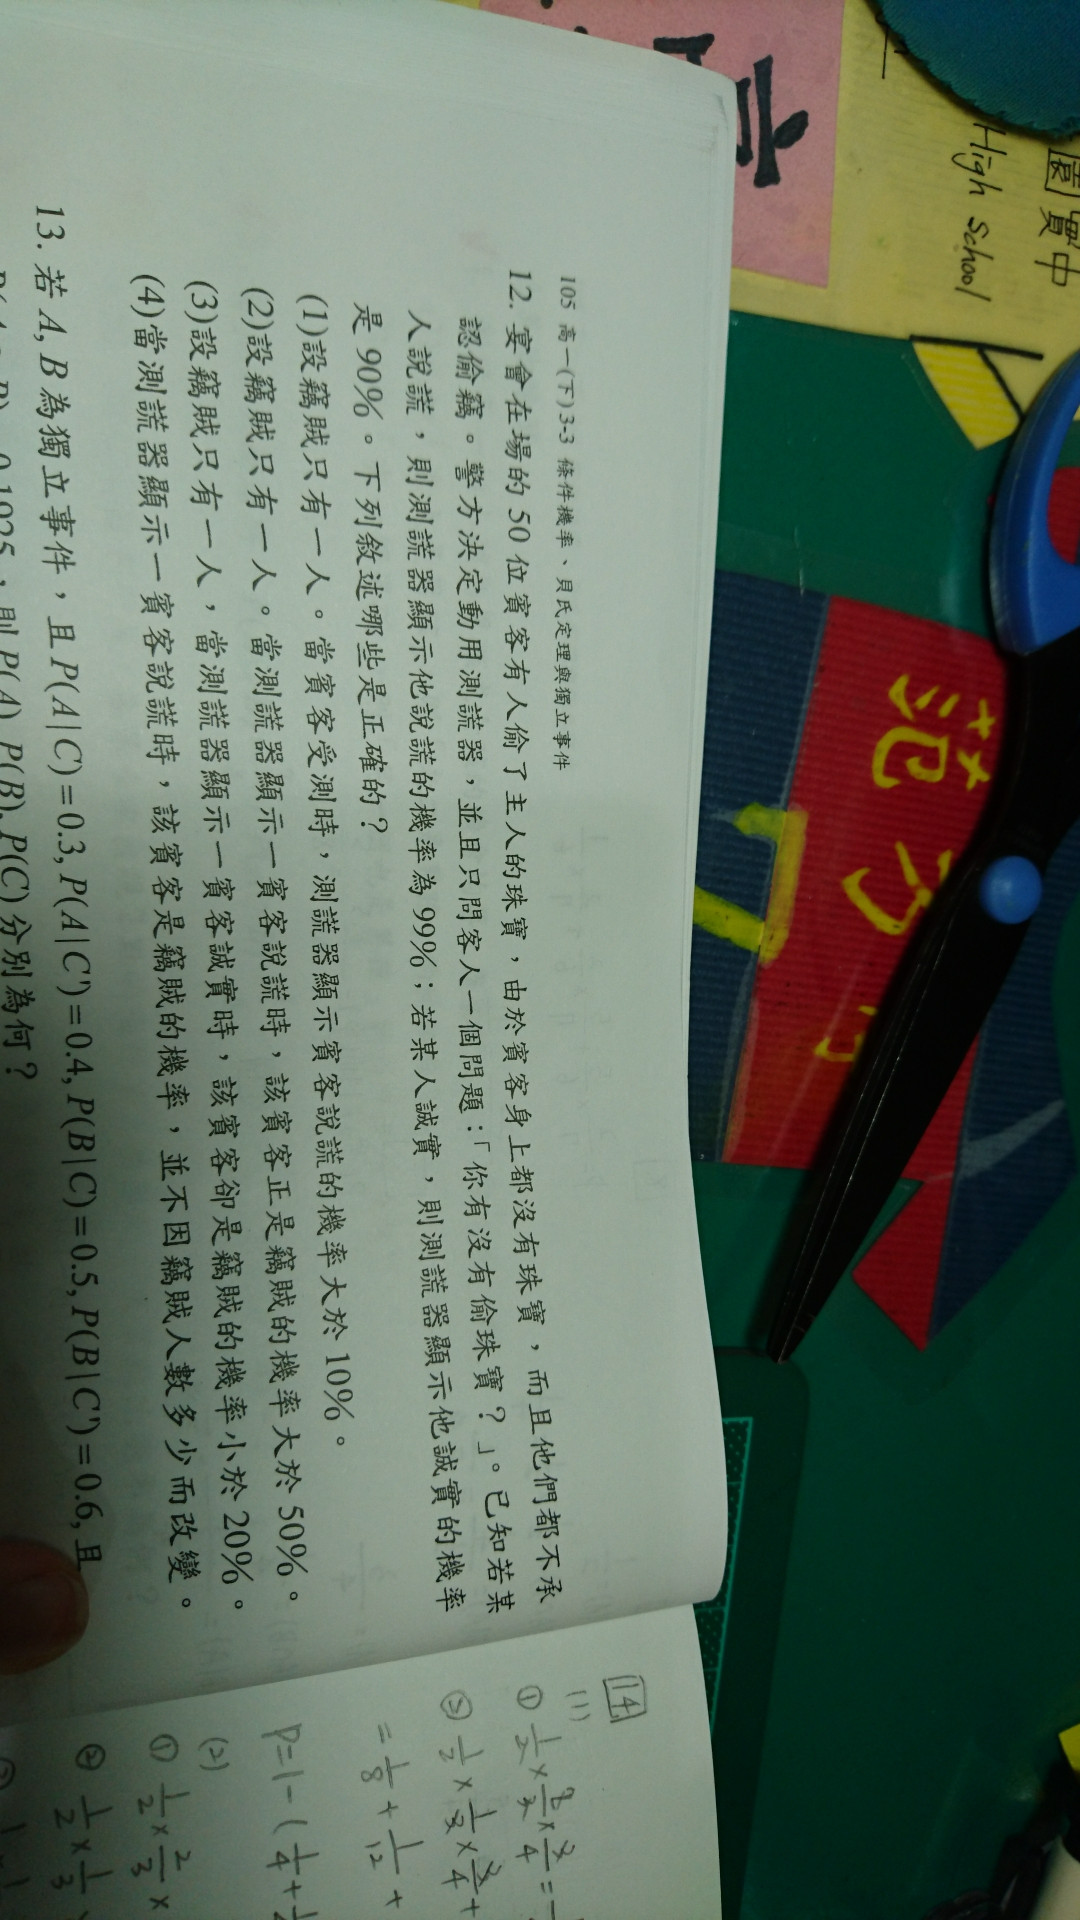 105 高一(下)3-3 條件機率、貝氏定理與獨立事件
12. 宴會在場的 50 位賓客有人偷了主人的珠寶，由於賓客身上都沒有珠寶，而且他們都不承
認偷竊。警方決定動用測謊器，並且只問客人一個問題：「你有沒有偷珠寶？」。已知若某
人說謊，則測謊器顯示他說謊的機率為 99%；若某人誠實，則測謊器顯示他誠實的機率
是 90%。下列敘述哪些是正確的？
(1)設竊賊只有一人。當賓客受測時，測謊器顯示賓客說謊的機率大於 10%。
(2)設竊賊只有一人。當測謊器顯示一賓客說謊時，該賓客正是竊賊的機率大於 50%。
(3)設竊賊只有一人，當測謊器顯示一賓客誠實時，該賓客卻是竊賊的機率小於 20%。
(4)當測謊器顯示一賓客說謊時，該賓客是竊賊的機率，並不因竊賊人數多少而改變。
13. 若 A, B 為獨立事件，且 P(A|C)=0.3, P(A|C')=0.4, P(B|C)=0.5, P(B|C')=0.6, 且
則 P(A), P(B), P(C) 分別為何？
14
(1)
① 1/2 ×
= 1/8 + 1/12 +
P=1-(1/4+
(2)
① 1/2 × 2/3 ×
② 1/2 × 1/3
實中
High School